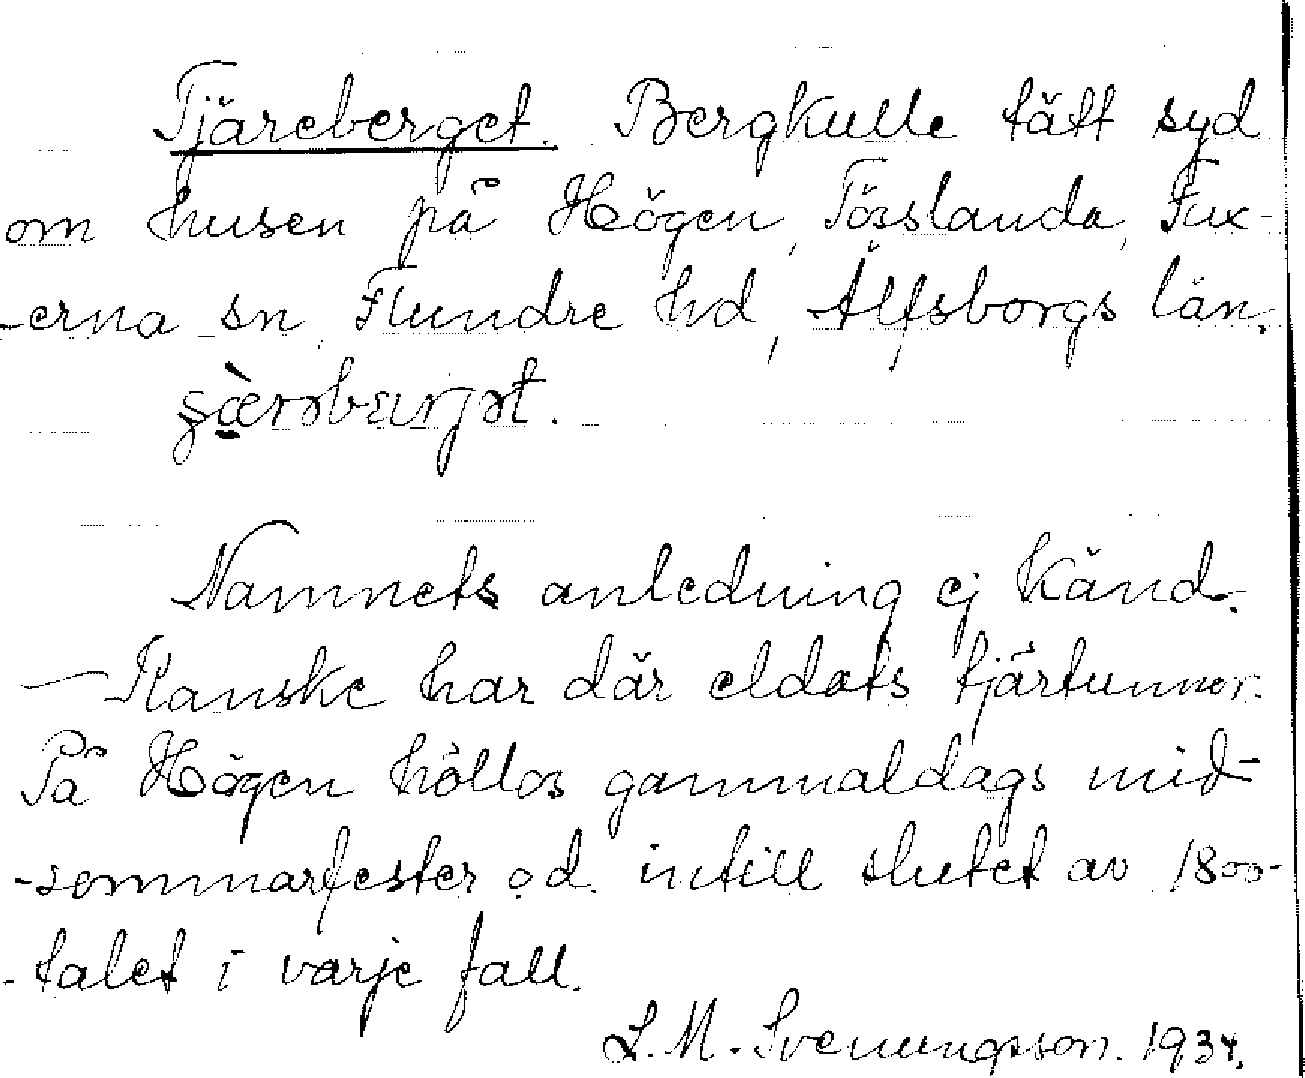 Tjäreberget. Bergkulle tätt syd
om husen på Högen, Tösslanda, Fux-
-erna sn, Flundre hd, Älfsborgs län.
Namnets anledning ej känd.
— Kanske har där eldats tjärtunnor.
På Högen höllos gammaldags mid-
-sommarfester o.d. intill slutet av 1800-
-talet i varje fall.
L. M. Svenungsson. 1934.